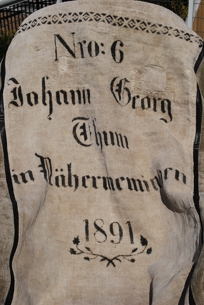 Nro: 6
Johann Georg
Thum
in Nähermemmingen
1891